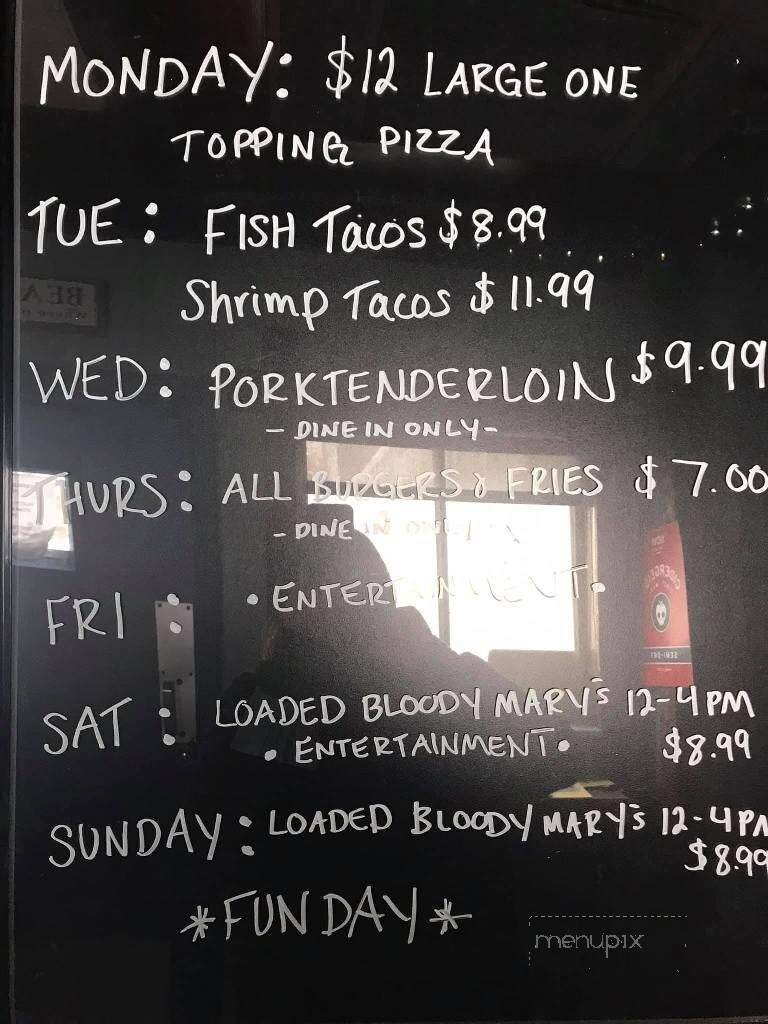 MONDAY: $12 LARGE ONE
TOPPING PIZZA
TUE: FISH Tacos $8.99
Shrimp Tacos $11.99
WED: PORKTENDERLOIN $9.99
- DINE IN ONLY -
THURS: ALL BURGERS & FRIES $7.00
- DINE IN ONLY -
FRI : • ENTERTAINMENT •
SAT : LOADED BLOODY MARY'S 12-4PM
• ENTERTAINMENT • $8.99
SUNDAY: LOADED BLOODY MARY'S 12-4PM
$8.99
*FUNDAY*
menupix